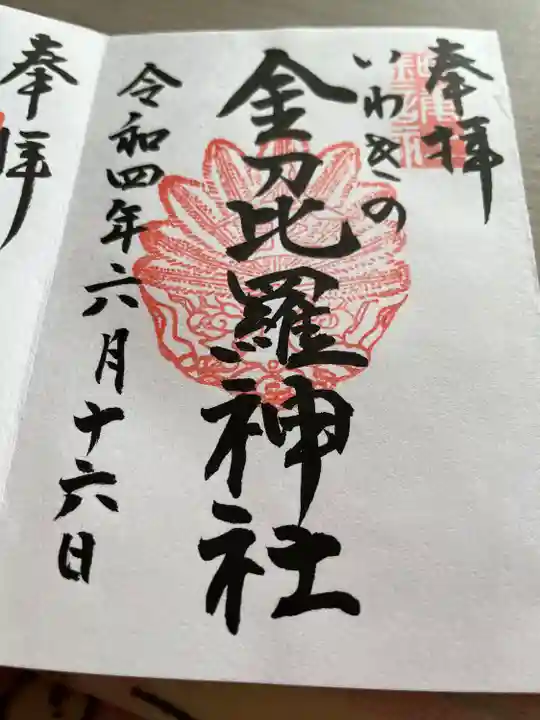 奉拝
いわきの
金刀比羅神社
令和四年六月十六日
奉拝